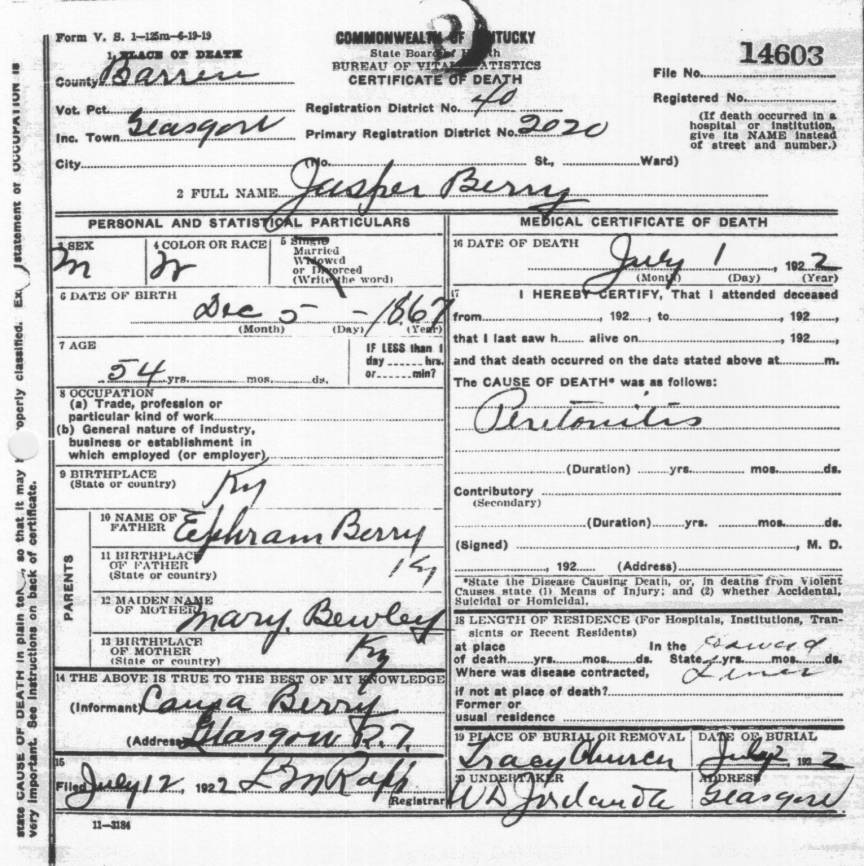 Form V. S. 1—125m—6-19-19
COMMONWEALTH OF KENTUCKY
State Board of Health
BUREAU OF VITAL STATISTICS
CERTIFICATE OF DEATH
14603
File No.
Registered No.
(If death occurred in a hospital or institution, give its NAME instead of street and number.)
1 PLACE OF DEATH
County Barren
Vot. Pct.
Registration District No. 40
Inc. Town Glasgow
Primary Registration District No. 2020
City (No. St., Ward)
2 FULL NAME Jasper Berry
PERSONAL AND STATISTICAL PARTICULARS
3 SEX
M
4 COLOR OR RACE
W
5 Single
Married
Widowed
or Divorced
(Write the word)
6 DATE OF BIRTH
Dec 5 - 1867
(Month) (Day) (Year)
7 AGE
54 yrs. mos. ds.
IF LESS than 1
day hrs.
or min?
8 OCCUPATION
(a) Trade, profession or
particular kind of work
(b) General nature of industry,
business or establishment in
which employed (or employer)
9 BIRTHPLACE
(State or country)
Ky
PARENTS
10 NAME OF
FATHER
Ephram Berry
11 BIRTHPLACE
OF FATHER
(State or country)
Ky
12 MAIDEN NAME
OF MOTHER
Mary Bewley
13 BIRTHPLACE
OF MOTHER
(State or country)
Ky
14 THE ABOVE IS TRUE TO THE BEST OF MY KNOWLEDGE
(Informant) Berry
(Address) Glasgow R.
15
Filed July 12, 1922
Registrar
11—3184
MEDICAL CERTIFICATE OF DEATH
16 DATE OF DEATH
July 1, 1922
(Month) (Day) (Year)
17 I HEREBY CERTIFY, That I attended deceased
from , 192 , to , 192 ,
that I last saw h alive on , 192 ,
and that death occurred on the date stated above at m.
The CAUSE OF DEATH* was as follows:
Peretonitis
(Duration) yrs. mos. ds.
Contributory
(Secondary)
(Duration) yrs. mos. ds.
(Signed) , M. D.
, 192 (Address)
*State the Disease Causing Death, or, in deaths from Violent
Causes state (1) Means of Injury; and (2) whether Accidental,
Suicidal or Homicidal.
18 LENGTH OF RESIDENCE (For Hospitals, Institutions, Tran-
sients or Recent Residents)
at place In the
of death yrs. mos. ds. State yrs. mos. ds.
Where was disease contracted,
if not at place of death?
Former or
usual residence
19 PLACE OF BURIAL OR REMOVAL
Tracy Church
DATE OF BURIAL
July 2, 1922
20 UNDERTAKER
W D Jordan
ADDRESS
Glasgow
state CAUSE OF DEATH in plain so that it may properly classified. statement of OCCUPATION is
very important. See instructions on back of certificate.